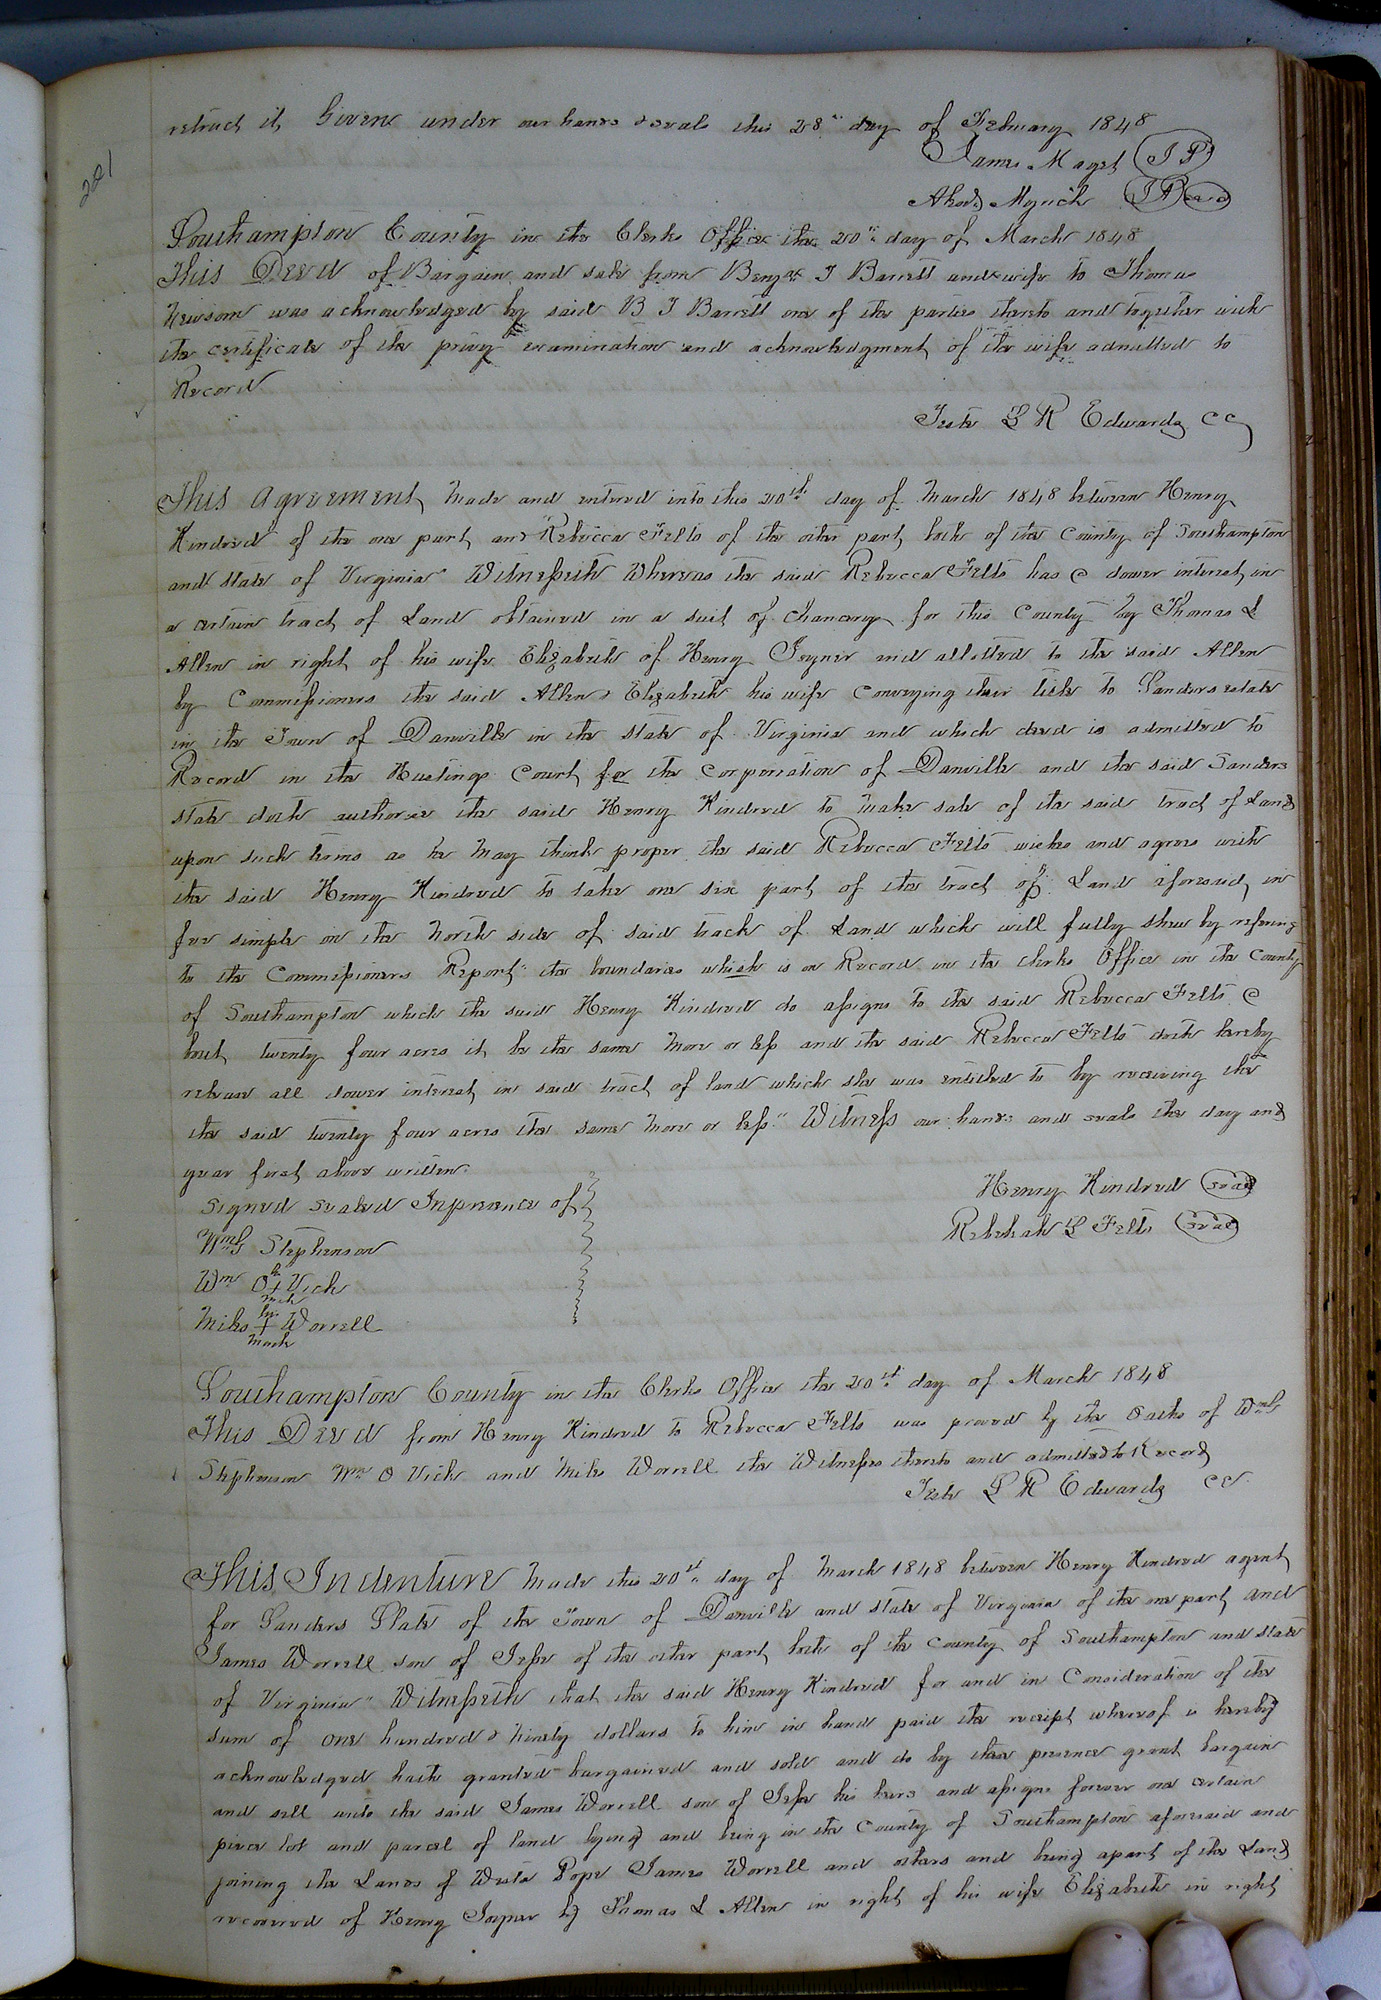 221
retract it, Given under our hands & seals this 28th day of February 1848
James Maget (J P)
J P seal
Southampton County in the Clerks Office the 20th day of March 1848
This Deed of Bargain and sale from Benja J Barrett and wife to Thomas
Newsom was acknowledged by said B J Barrett one of the parties thereto and together with
the certificate of the privy examination and acknowledgment of the wife admitted to
Record
Teste L R Edwards CC
This Agreement made and entered into this 20th day of March 1848 between Henry
Kindred of the one part and Rebecca Felts of the other part both of the County of Southampton
and state of Virginia Witnesseth Whereas the said Rebecca Felts has a dower interest in
a certain tract of Land obtained in a suit of chancery for this County by Thomas L
Allen in right of his wife Elizabeth of Henry Joyner and allotted to the said Allen
by Commissioners the said Allen & Elizabeth his wife conveying their title to Sanders estate
in the Town of Danville in the state of Virginia and which deed is admitted to
Record in the Hustings Court for the Corporation of Danville and the said Sanders
state doth authorise the said Henry Kindred to make sale of the said tract of Land
upon such terms as he may think proper the said Rebecca Felts wishes and agrees with
the said Henry Kindred to take one six part of the tract of Land aforesaid, in
fee simple on the North side of said track of Land which will fully shew by refering
to the Commissioners Report the boundaries which is on Record in the clerks Office in the County
of Southampton which the said Henry Kindred do assigns to the said Rebecca Felts a
bout twenty four acres it be the same more or less and the said Rebecca Felts doth hereby
release all dower interest in said tract of land which she was entitled to by receiving the
the said twenty four acres the same more or less" Witness our hands and seals the day and
year first above written.
Henry Kindred (seal)
Signed sealed In presence of
Rebekah L Felts (seal)
Wm G Stephenson
Wm O his + mark Vick
Miles his + mark Worrell
Southampton County in the Clerks Office the 20th day of March 1848
This Deed from Henry Kindred to Rebecca Felts was proved by the Oaths of Wm G
Stephenson Wm O Vick and Miles Worrell the Witnesses thereto and admitted to Record
Teste L R Edwards CC
This Indenture Made this 20th day of March 1848 between Henry Kindred agent
for Sanders Slate of the Town of Danville and state of Virginia of the one part and
James Worrell son of Jesse of the other part both of the county of Southampton and state
of Virginia" Witnesseth that the said Henry Kindred for and in Consideration of the
sum of one hundred & ninety dollars to him in hand paid the receipt whereof is hereby
acknowledged hath granted bargained and sold and do by these presence grant bargain
and sell unto the said James Worrell son of Jesse his heirs and assigns forever one certain
piece lot and parcel of land lying and being in the County of Southampton aforesaid and
joining the Lands of Pope James Worrell and others and being apart of the Land
recovered of Henry Joyner by Thomas L Allen in right of his wife Elizabeth in right